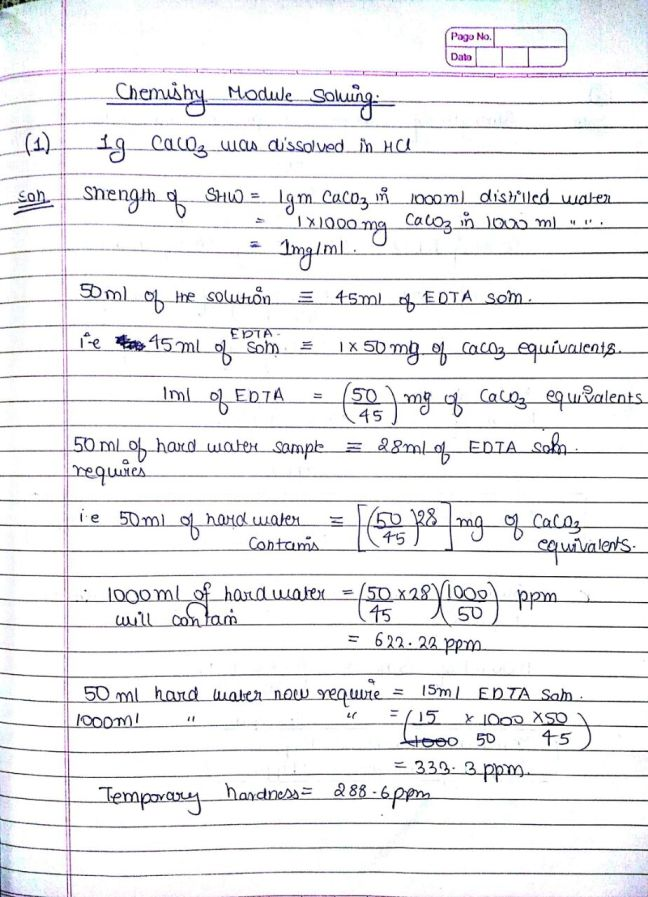 Page No.
Date
Chemistry Module Solving.
(1) 1g CaCO3 was dissolved in HCl
Soln Strength of SHW = 1gm CaCO3 in 1000ml distilled water
= 1x1000mg CaCO3 in 1000 ml " ".
= 1mg/ml.
50ml of the solution ≡ 45ml of EDTA soln.
i.e 45ml of EDTA soln ≡ 1x50mg of CaCO3 equivalents.
1ml of EDTA = (50/45) mg of CaCO3 equivalents
50ml of hard water sample ≡ 28ml of EDTA soln.
requires
i.e 50ml of hard water ≡ [(50/45)28] mg of CaCO3
contains equivalents.
∴ 1000ml of hard water = (50/45 x 28)(1000/50) ppm
will contain
= 622.22 ppm
50 ml hard water now require = 15ml EDTA soln.
1000ml " " = (15/50 x 1000 x 50/45)
= 333.3 ppm.
Temporary hardness = 288.6ppm